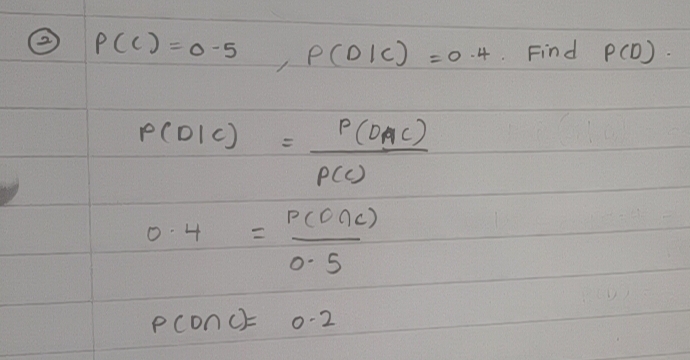 ② P(C) = 0.5 , P(D|C) = 0.4. Find P(D).
P(D|C) = P(D∩C)
P(C)
0.4 = P(D∩C)
0.5
P(D∩C) = 0.2